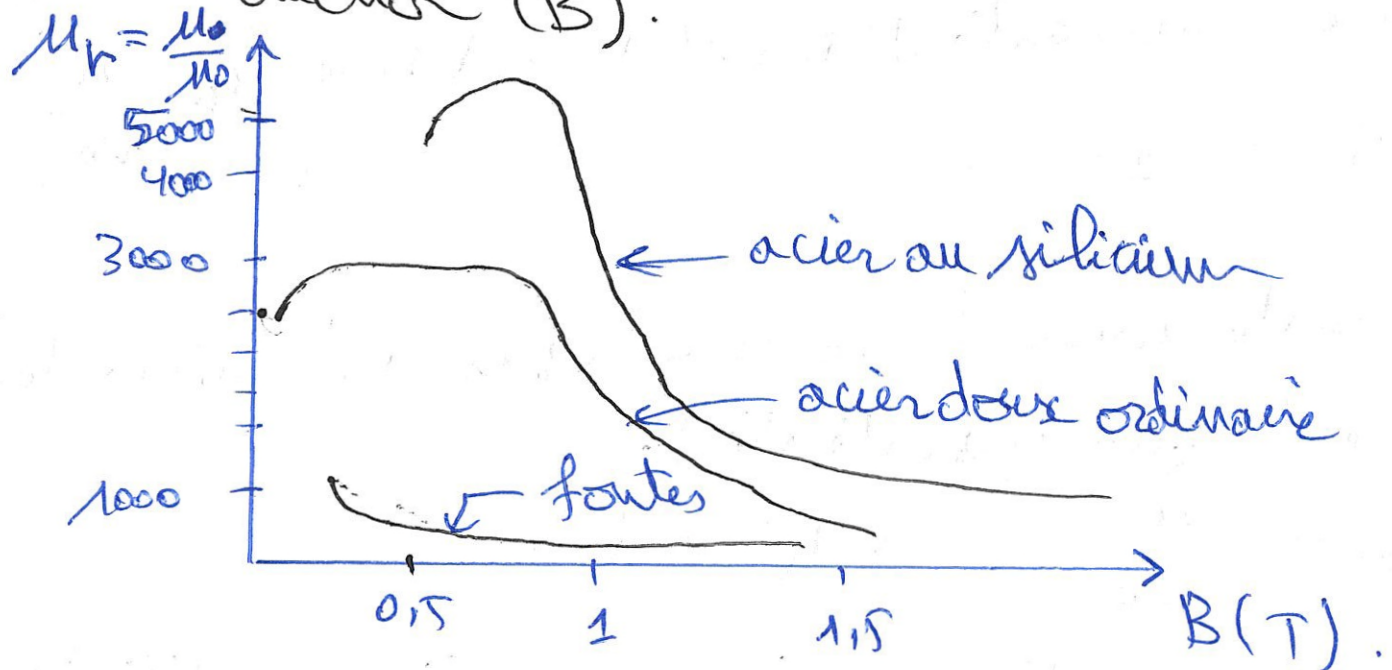 (B).
μr = μ•/μ0
5000
4000
3000
acier au silicium
acier doux ordinaire
1000
fontes
0,5
1
1,5
B(T).